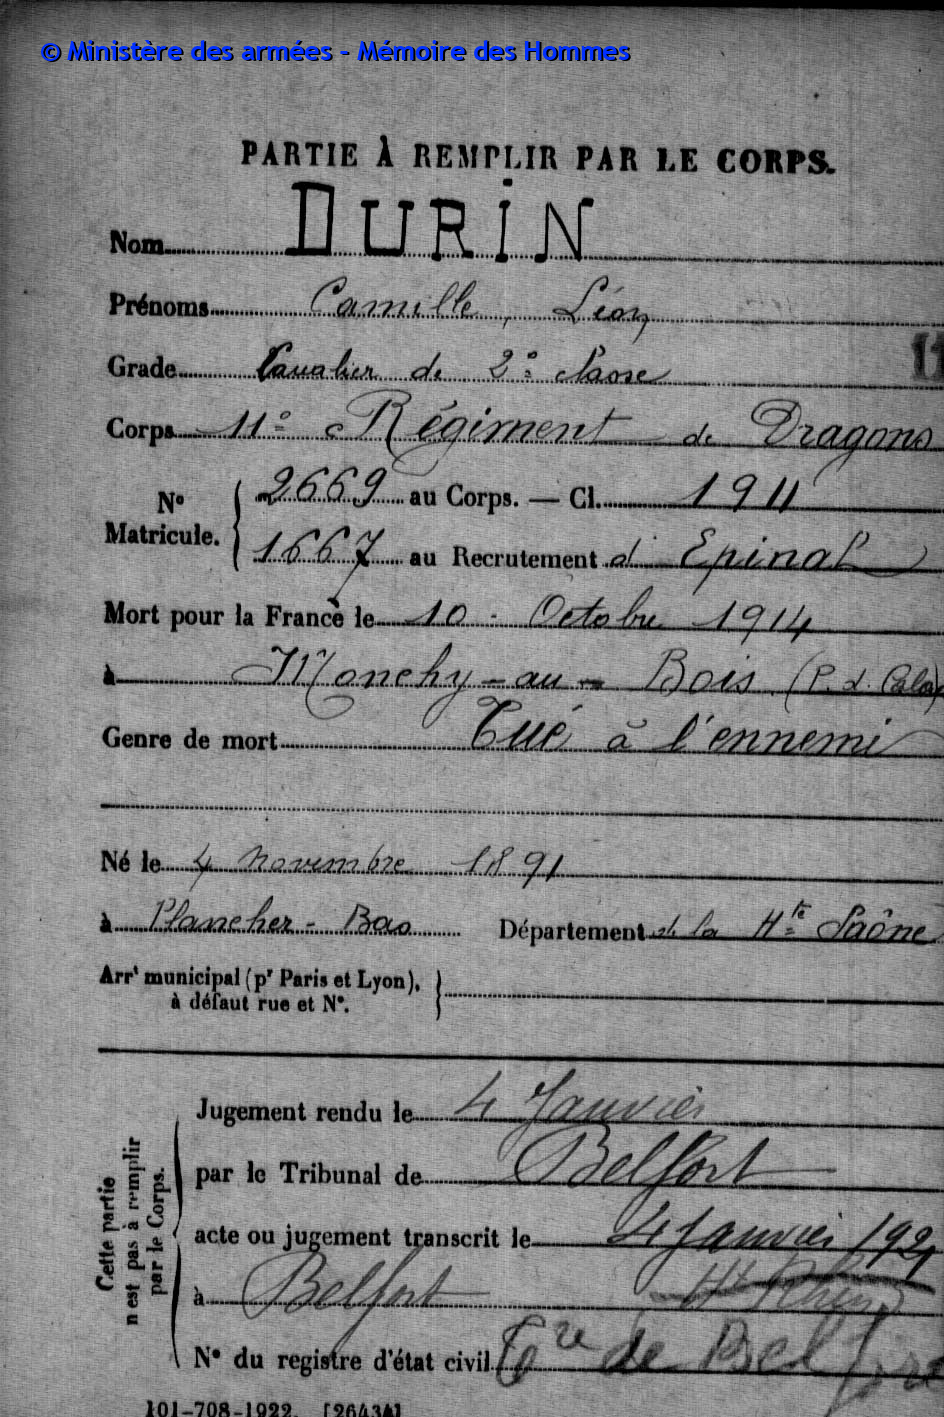 © Ministère des armées - Mémoire des Hommes
PARTIE À REMPLIR PAR LE CORPS.
Nom DURIN
Prénoms Camille, Léon
Grade Cavalier de 2e classe
11
Corps 11e Régiment de Dragons
No Matricule. 2669 au Corps. — Cl. 1911
1667 au Recrutement d' Epinal
Mort pour la France le 10 - Octobre 1914
à Monchy-au-Bois (P. d. Calais)
Genre de mort Tué à l'ennemi
Né le 4 novembre 1891
à Plancher-Bas Département de la Hte Saône
Arrt municipal (pr Paris et Lyon),
à défaut rue et No.
Cette partie n'est pas à remplir par le Corps.
Jugement rendu le 4 Janvier
par le Tribunal de Belfort
acte ou jugement transcrit le 4 Janvier 1921
à Belfort Ht Rhin
No du registre d'état civil Tre de Belfort
101-708-1922. [26434]